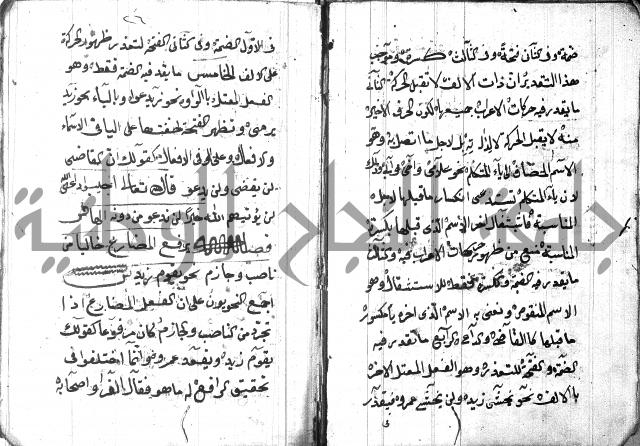 ضمة وفي الثاني فتحة وفي الثالث كسرة وموجب
هذا التقدير ان ذات الالف لا تقبل الحركة الثاني
ما يقدر فيه حركات الاعراب جميعها لا لكون الحرف الاخير
منه لا يقبل الحركة لذاته بل لاجل ما اتصل به وهو
الاسم المضاف الى ياء المتكلم نحو غلامي واخي وابي وذلك
لان ياء المتكلم تستدعي انكسار ما قبلها لاجل
المناسبة فاشتغال اخر الاسم الذي قبلها بكسرة
المناسبة منع من ظهور حركات الاعراب فيه الثالث
ما يقدر فيه الضمة والكسرة فقط للاستثقال وهو
الاسم المنقوص ونعني به الاسم الذي اخره ياء مكسور
ما قبلها كالقاضي والداعي الرابع ما يقدر فيه
الضمة والفتحة للتعذر وهو الفعل المعتل الاخر
بالالف نحو يخشى زيد ولن يخشى عمرو فيقدر
في الاول الضمة وفي الثاني الفتحة لتعذر ظهور الحركة
على الالف الخامس ما يقدر فيه الضمة فقط وهو
الفعل المعتل بالواو نحو زيد يدعو وبالياء نحو زيد
يرمي وتظهر الفتحة لخفتها على الياء في الاسماء
والافعال وعلى الواو في الافعال كقولك ان القاضي
لن يقضي ولن يدعو قال الله تعالى اجيبوا داعي الله
لن يؤتيهم الله خيرا لن ندعو من دونه الها
فصل يرفع المضارع خاليا من
ناصب وجازم نحو يقوم زيد
اجمع النحويون على ان الفعل المضارع اذا
تجرد من الناصب والجازم كان مرفوعا كقولك
يقوم زيد ويقعد عمرو وانما اختلفوا في
تحقيق الرافع له ما هو فقال الفرا واصحابه
جامعة النجاح الوطنية